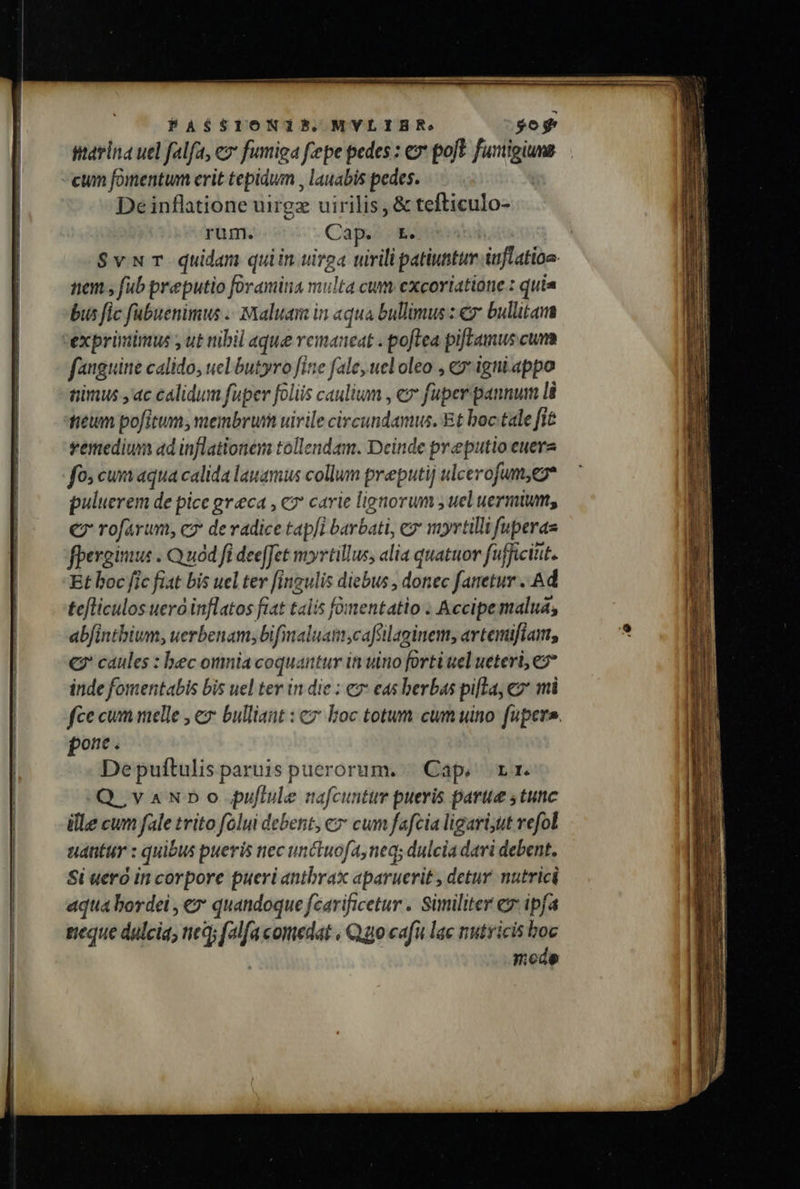 PASSIONIB. MVLIER.
marina uel salsa, & fumiga sæpe pedes: & post fumigium
cum fomentum erit tepidum, lauabis pedes.
De inflatione uirgæ uirilis, & testiculo-
rum. Cap. L.
SVNT quidam qui in uirga uirili patiuntur inflatio=
nem, sub præputio foramina multa cum excoriatione: qui=
bus sic subuenimus. Maluam in aqua bullimus: & bullitam
exprimimus, ut nihil aquæ remaneat. postea pistamus cum
sanguine calido, uel butyro sine sale, uel oleo, & igni appo
nimus, ac calidum super foliis caulium, & super pannum li
neum positum, membrum uirile circundamus. Et hoc tale fit
remedium ad inflationem tollendam. Deinde præputio euer=
so, cum aqua calida lauamus collum præputij ulcerosum, &
puluerem de pice græca, & carie lignorum, uel uermium,
& rosarum, & de radice tapsi barbati, & myrtilli superas
spergimus. Quòd si deesset myrtillus, alia quatuor sufficiūt.
Et hoc sic fiat bis uel ter singulis diebus, donec sanetur. Ad
testiculos uerò inflatos fiat talis fomentatio. Accipe maluā,
absinthium, uerbenam, bismaluam, cassilaginem, artemisiam,
& caules: hæc omnia coquantur in uino forti uel ueteri, &
inde fomentabis bis uel ter in die: & eas herbas pista, & mi
sce cum melle, & bulliant: & hoc totum cum uino super=
pone.
De pustulis paruis puerorum. Cap. LI.
QVANDO pustulæ nascuntur pueris paruæ, tunc
illæ cum sale trito solui debent, & cum fascia ligari, ut resol
uantur: quibus pueris nec unctuosa, neq; dulcia dari debent.
Si uerò in corpore pueri anthrax aparuerit, detur nutrici
aqua hordei, & quandoque scarificetur. Similiter & ipsa
neque dulcia, neq; salsa comedat. Quo casu lac nutricis hoc
modo